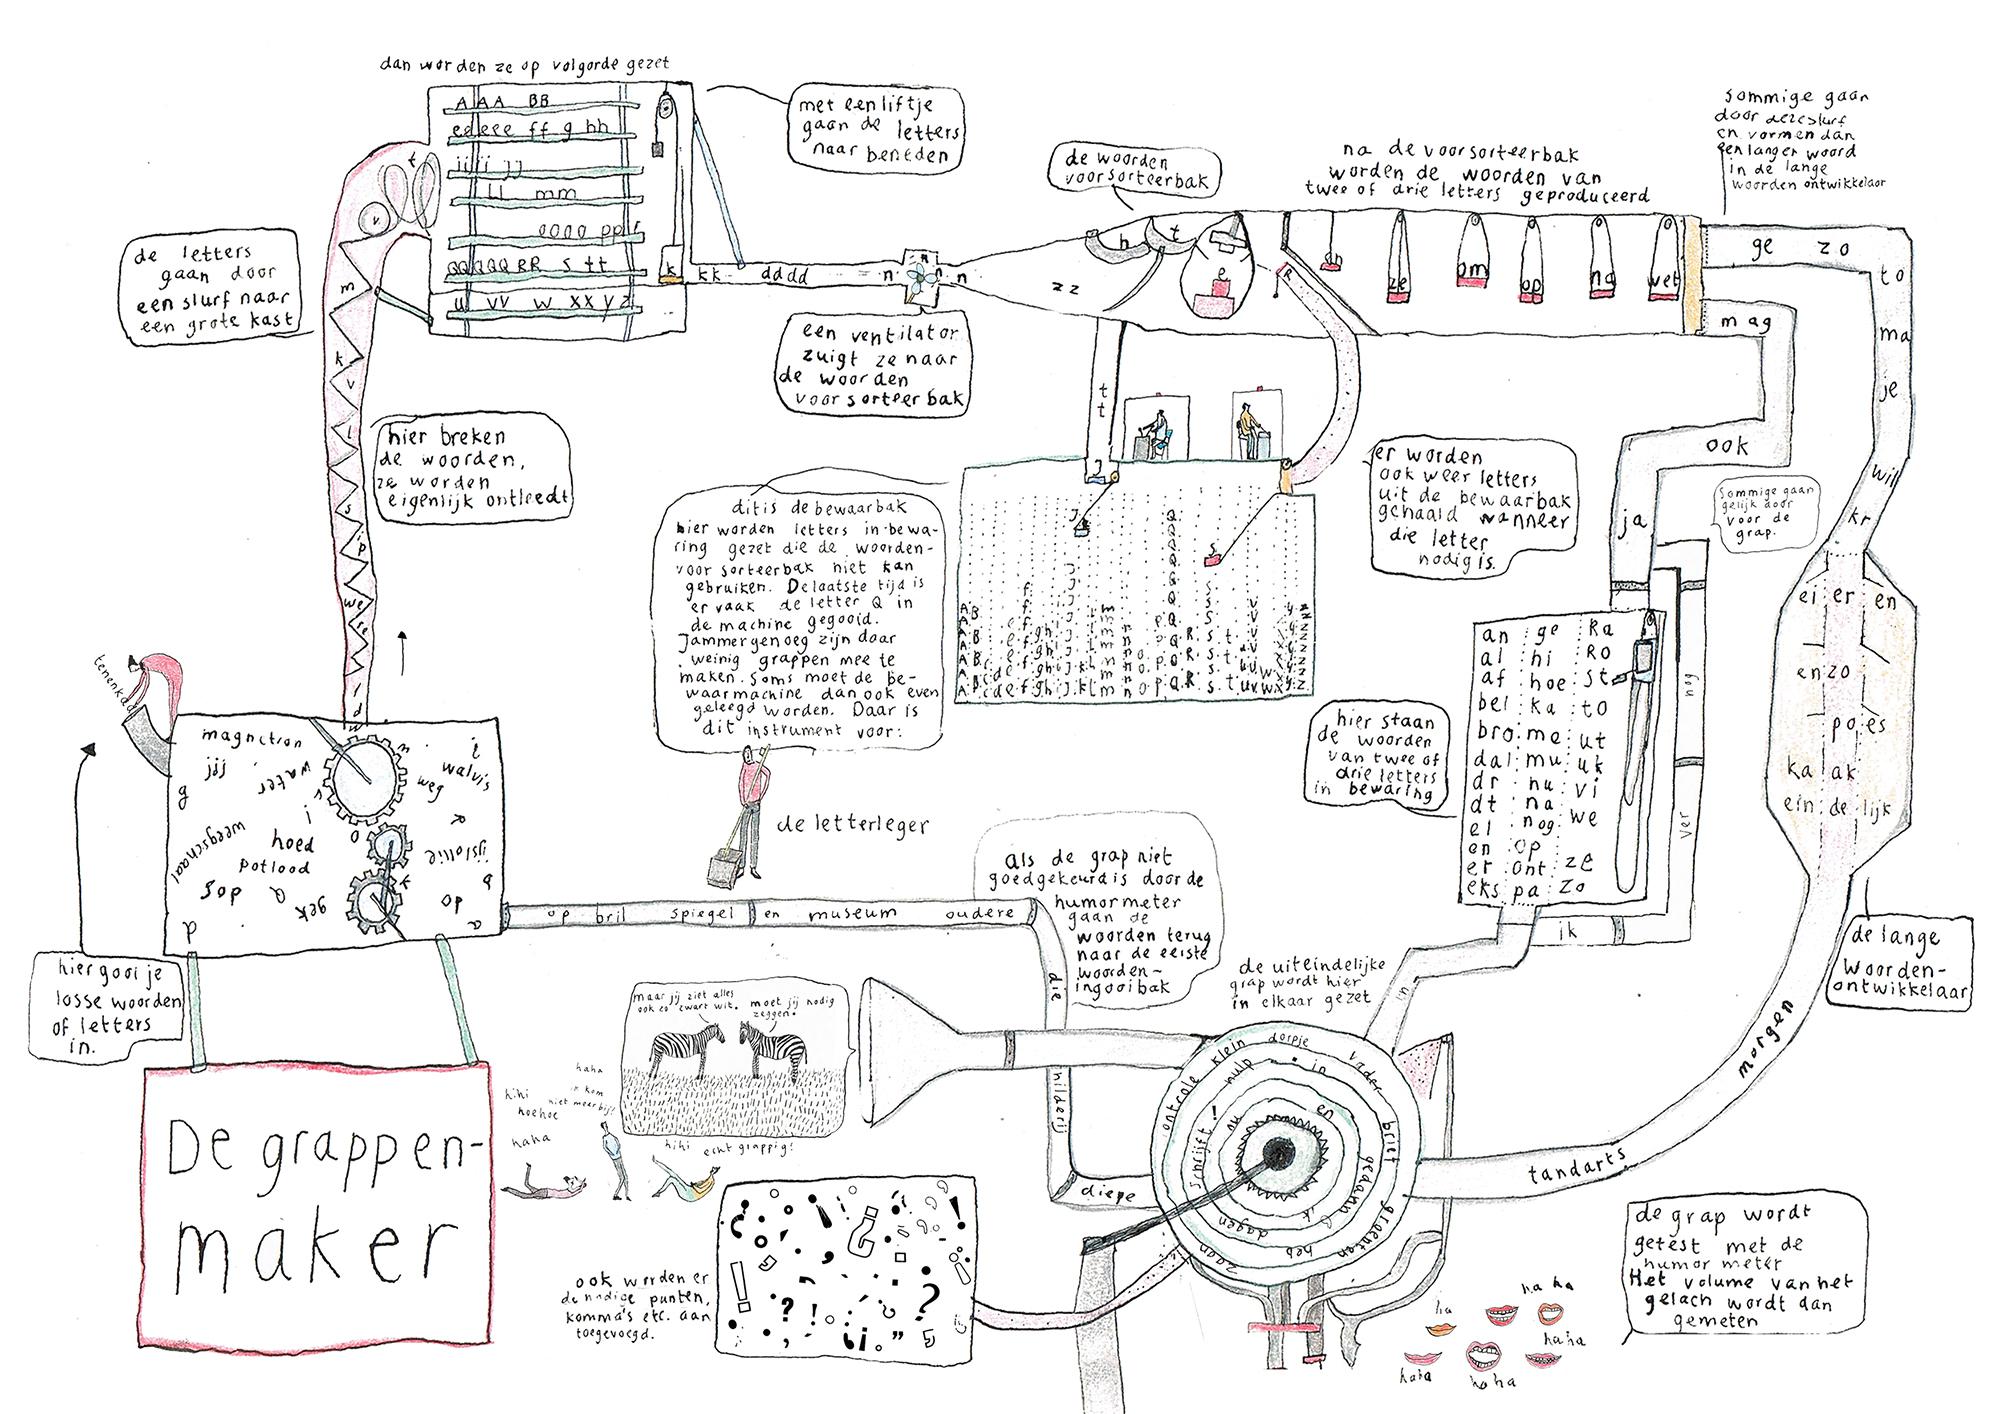 dan worden ze op volgorde gezet
AAA BB
eeeee ff g hh
iiii jj
LL mm
oooo pp r
QQQQQ RR S tt
u vv w xx y z
k
kk dddd n n n n
met een liftje
gaan de letters
naar beneden
de letters
gaan door
een slurf naar
een grote kast
t
v
m
k
v
l
s
ip
we
re
d
w
hier breken
de woorden,
ze worden
eigenlijk ontleedt
een ventilator
zuigt ze naar
de woorden
voorsorteerbak
de woorden
voorsorteerbak
zz
h t
e
R
na de voorsorteerbak
worden de woorden van
twee of drie letters geproduceerd
en ze om op na wet
sommige gaan
door deze slurf
en vormen dan
een langer woord
in de lange
woorden ontwikkelaar
ge zo
to
ma
je
wil
kr
mag
ook
ja
sommige gaan
gelijk door
voor de
grap.
tt
J
er worden
ook weer letters
uit de bewaarbak
gehaald wanneer
die letter
nodig is.
dit is de bewaarbak
hier worden letters in bewa-
ring gezet die de woorden-
voorsorteerbak niet kan
gebruiken. De laatste tijd is
er vaak de letter Q in
de machine gegooid.
Jammergenoeg zijn daar
weinig grappen mee te
maken. Soms moet de be-
waarmachine dan ook even
geleegd worden. Daar is
dit instrument voor:
de letterleger
tenenkaas
magnetron
jij
water
weegschaal
hoed
potlood
sop
Q
gek
walvis
weg
ijslollie
do
a
d
hier gooi je
losse woorden
of letters
in.
De grappen-
maker
op bril spiegel en museum oudere
die
hilderij
diepe
als de grap niet
goedgekeurd is door de
humormeter
gaan de
woorden terug
naar de eerste
woorden-
ingooibak
hier staan
de woorden
van twee of
drie letters
in bewaring
an ge Ra
al hi Ro
af hoe st
bel ka to
bro me ut
dal mu uk
dr nu vi
dt na we
el nog
en op
er ont ze
eks pa zo
nog
ver
ik
in
ei er en
enzo
po es
ka ak
ein de lijk
de lange
woorden-
ontwikkelaar
morgen
tandarts
de uiteindelijke
grap wordt hier
in elkaar gezet
ontrole klein dorpje vader brief groenten heb zaan
schrijft! hulp in gedaan dagen
nu en ik
maar jij ziet alles
ook zo zwart wit.
moet jij nodig
zeggen.
haha
ik kom
niet meer bij!
hihi
hoehoe
haha
hihi echt grappig!
ook worden er
de nodige punten,
komma's etc. aan
toegevoegd.
de grap wordt
getest met de
humor meter
Het volume van het
gelach wordt dan
gemeten
ha
ha ha
haha
haha
haha